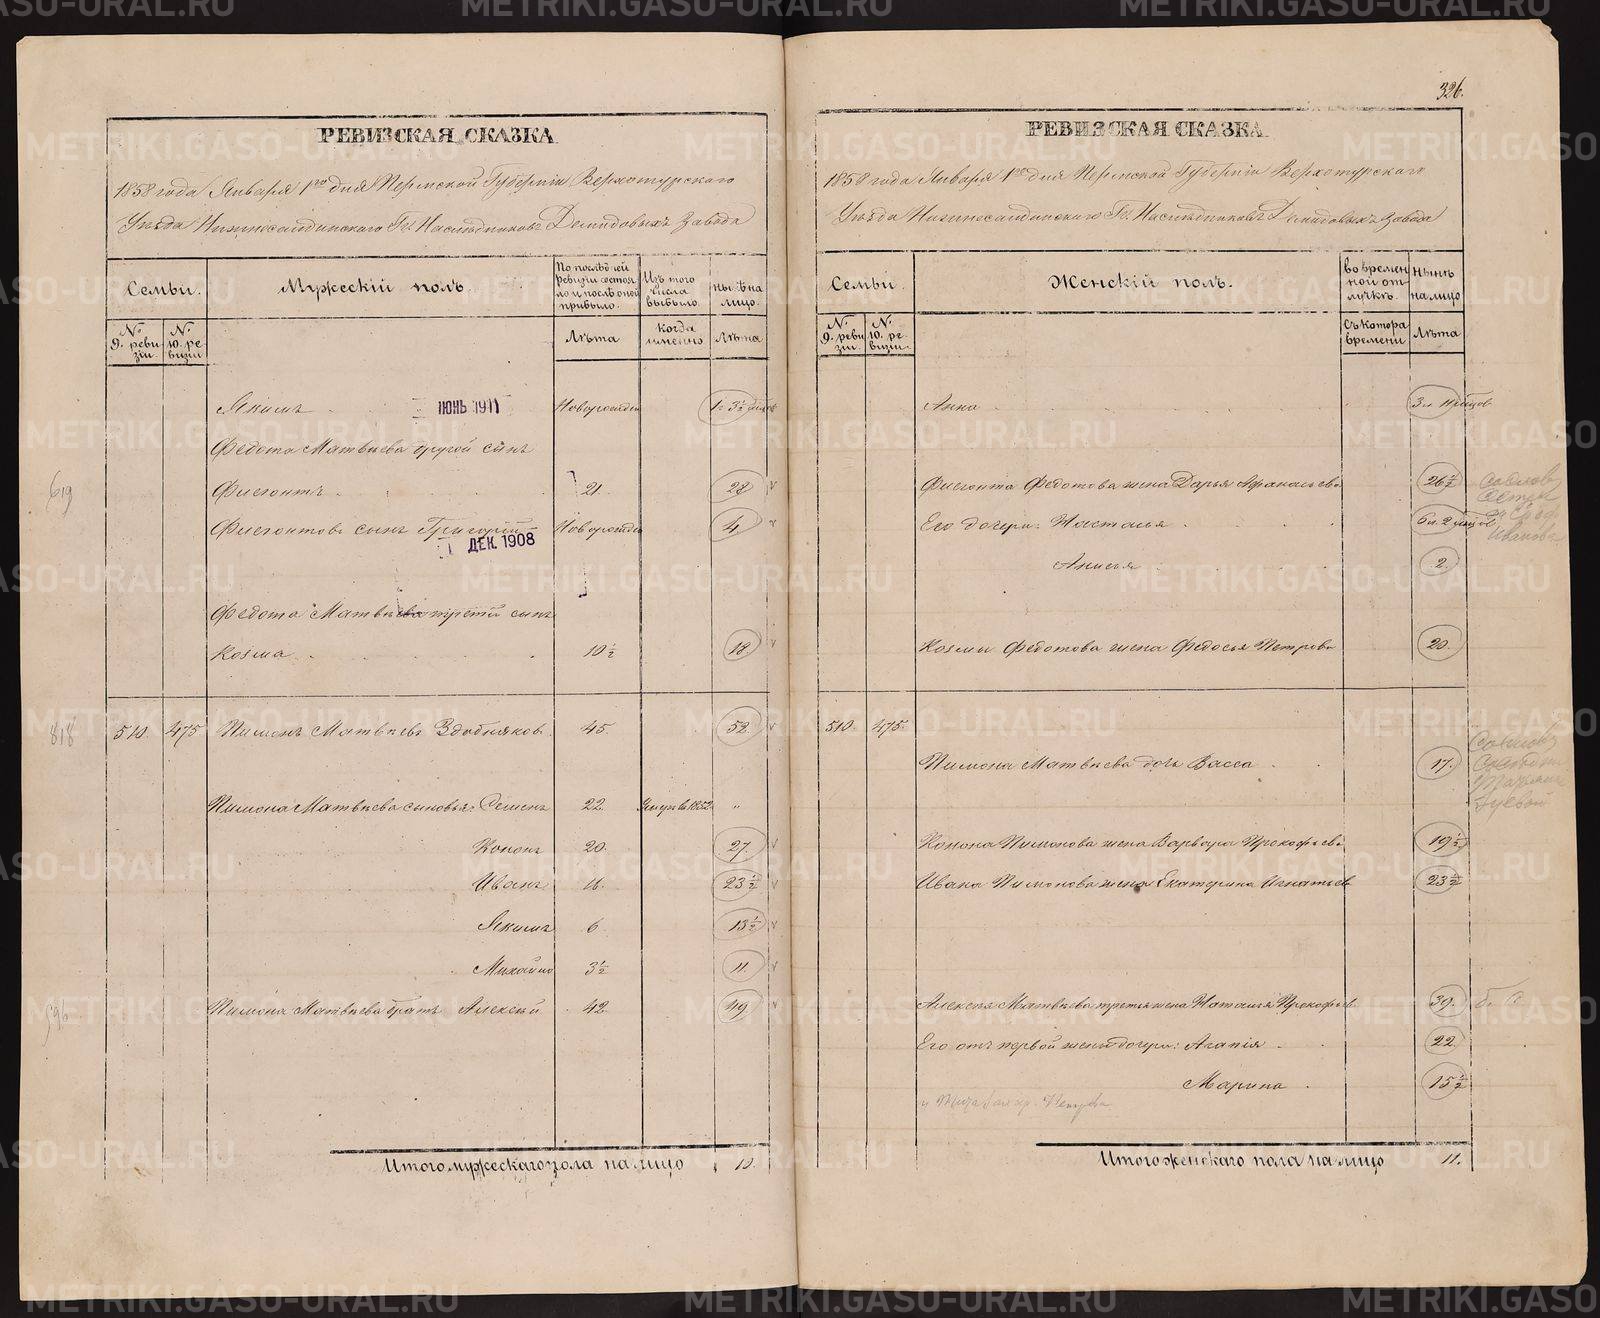 326.
РЕВИЗСКАЯ СКАЗКА
1858 года Января 1го дня Пермской Губерніи Верхотурского
Уѣзда Нижнесалдинского Гг. Наслѣдниковъ Демидовыхъ завода
Семьи.
Мужескій полъ.
По послѣдней ревизіи состояло и послѣ оной прибыло.
Изъ того числа выбыло.
нынѣ на лицо.
№ 9. ревизіи
№ 10. ревизіи
Лѣта
когда именно
Лѣта
Якимъ Новорожден
ІЮНЬ 1911
Федота Матвѣева другой сынъ
619
21 28
Сынъ Григорій Новорожден 4
ДЕК. 1908
Федота Матвѣева третій сынъ
Козма 10½ 18
818
510. 475 Пимонъ Матвѣевъ 45. 52
Пимона Матвѣева сыновья: Семенъ 22 1852 "
Кононъ 20. 27.
Иванъ 16. 23½
Якимъ 6 13½
Михайло 3½ 11.
Пимона Матвѣева братъ Алексѣй 42. 49
Итого мужескаго пола на лицо 10.
РЕВИЗСКАЯ СКАЗКА
1858 года Января 1го дня Пермской Губерніи Верхотурского
Уѣзда Нижнесалдинского Гг. Наслѣдниковъ Демидовыхъ завода
Семьи.
Женскій полъ.
во временной отлучкѣ.
нынѣ на лицо
№ 9. ревизіи
№ 10. ревизіи
Съ котора времени
Лѣта
Анна
Федотова жена Дарья Афанасьева 26½
Его дочери: Настасья
Анисья 2.
Козмы Федотова жена Федосья Петрова 20.
510. 475.
Пимона Матвѣева дочь Васса 17.
Конона Пимонова жена Варвара Прокофьева 19½
Ивана Пимонова жена Екатерина Игнатьев 23½
Алексѣя Матвѣева третья жена Наталья Прокофьев 39.
Его отъ первой жены дочери: Агапія 22
Марина 15½
Итого женскаго пола на лицо 11.
METRIKI.GASO-URAL.RU